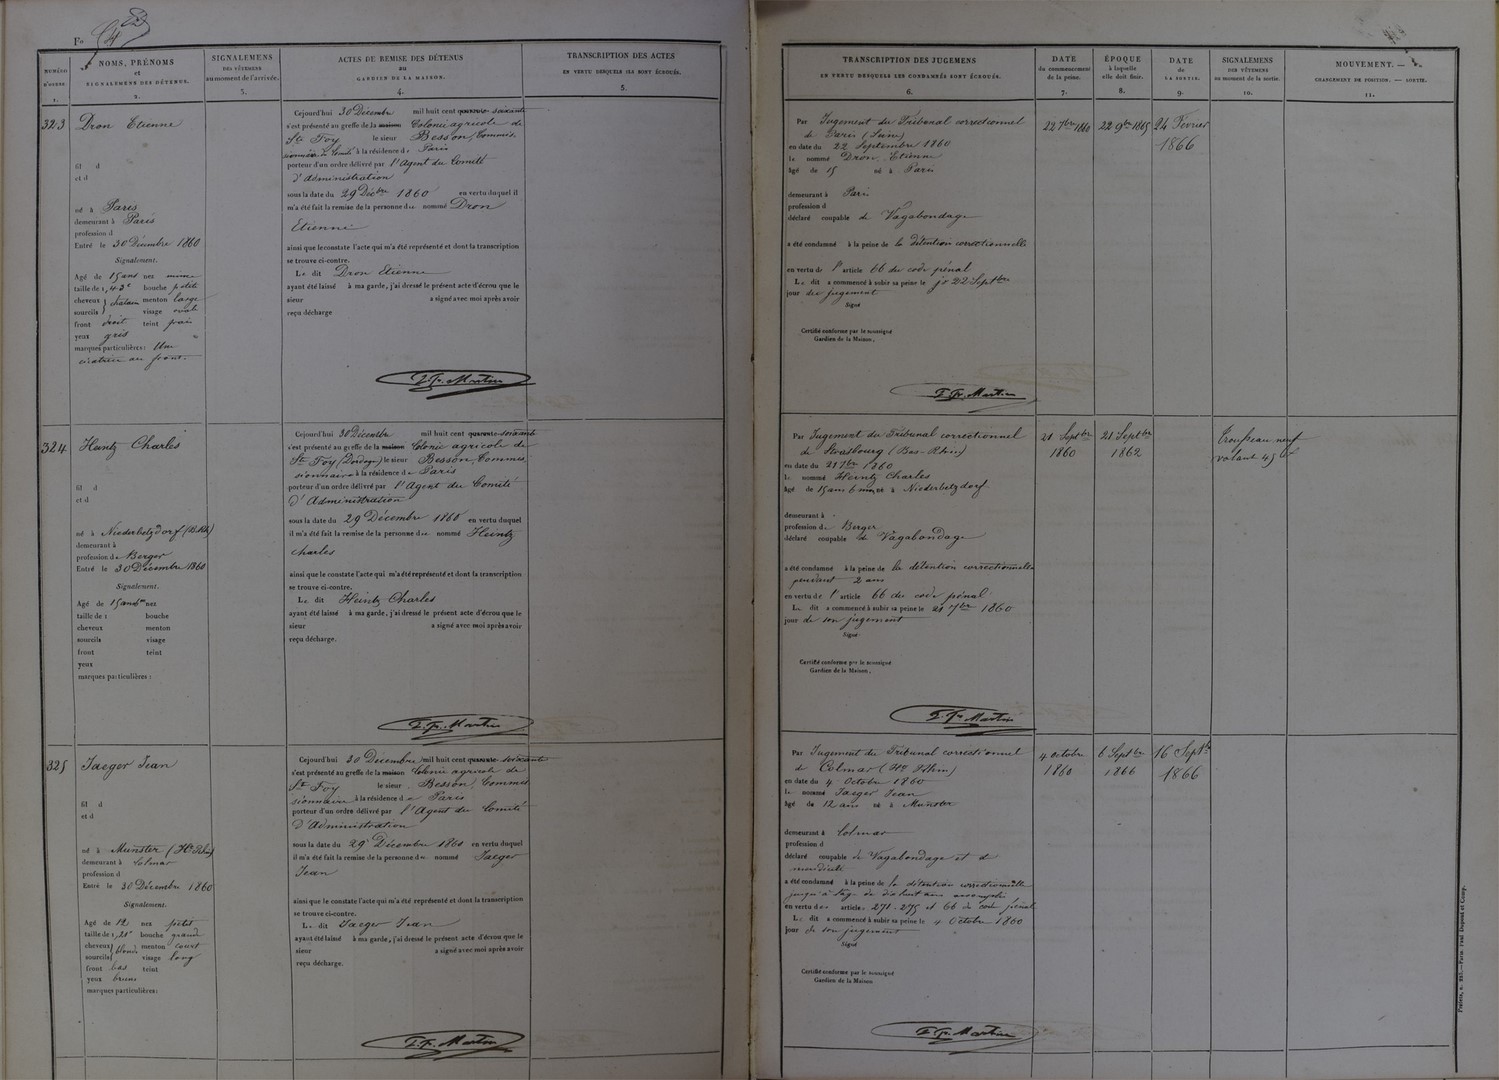 Fo
NUMÉRO
D'ORDRE.
1.
NOMS, PRÉNOMS
et
SIGNALEMENS DES DÉTENUS.
2.
SIGNALEMENS
DES VÊTEMENS
au moment de l'arrivée.
3.
ACTES DE REMISE DES DÉTENUS
au
GARDIEN DE LA MAISON.
4.
TRANSCRIPTION DES ACTES
EN VERTU DESQUELS ILS SONT ÉCROUÉS.
5.
TRANSCRIPTION DES JUGEMENS
EN VERTU DESQUELS LES CONDAMNÉS SONT ÉCROUÉS.
6.
DATE
du commencement
de la peine.
7.
ÉPOQUE
à laquelle
elle doit finir.
8.
DATE
de
LA SORTIE.
9.
SIGNALEMENS
DES VÊTEMENS
au moment de la sortie.
10.
MOUVEMENT. —
CHANGEMENT DE POSITION. — SORTIE.
11.
323
Dron Etienne
fil d
et d
né à Paris
demeurant à Paris
profession d
Entré le 30 Décembre 1860
Signalement.
Agé de 15 ans nez mince
taille de 1,43c bouche petite
cheveux } chatain menton large
sourcils } visage ovale
front droit teint
yeux gris
marques particulières : Une
cicatrice au front.
Cejourd'hui 30 Décembre mil huit cent quarante- soixante
s'est présenté au greffe de la maison Colonie agricole de
Ste Foy le sieur Besson, Commis-
sionnaire à la résidence d e Paris
porteur d'un ordre délivré par l'Agent du Comité
d'Administration
sous la date du 29 Décbre 1860 en vertu duquel il
m'a été fait la remise de la personne du nommé Dron
Etienne
ainsi que le constate l'acte qui m'a été représenté et dont la transcription
se trouve ci-contre.
Le dit Dron Etienne
ayant été laissé à ma garde, j'ai dressé le présent acte d'écrou que le
sieur a signé avec moi après avoir
reçu décharge
Martin
Par Jugement du Tribunal correctionnel
de Paris (Seine)
en date du 22 Septembre 1860
le nommé Dron, Etienne
âgé de 15 né à Paris
demeurant à Paris
profession d
déclaré coupable de Vagabondage
a été condamné à la peine de la détention correctionnelle
en vertu de l' article 66 du code pénal
Le dit a commencé à subir sa peine le 22 Septbre
jour du jugement
Signé
Certifié conforme par le soussigné
Gardien de la Maison.
Martin
22 7bre 1860
22 9bre 1865
24 Février
1866
324
Heintz Charles
fil d
et d
né à Niederbetzdorf (B. Rh)
demeurant à
profession de Berger
Entré le 30 Décembre 1860
Signalement.
Agé de 15 ans 6 m nez
taille de 1 bouche
cheveux menton
sourcils visage
front teint
yeux
marques particulières :
Cejourd'hui 30 Décembre mil huit cent quarante-soixante
s'est présenté au greffe de la maison Colonie agricole de
Ste Foy (Dordogne) le sieur Besson, Commis-
sionnaire à la résidence de Paris
porteur d'un ordre délivré par l'Agent du Comité
d'Administration
sous la date du 29 Décembre 1860 en vertu duquel
il m'a été fait la remise de la personne du nommé Heintz
Charles
ainsi que le constate l'acte qui m'a été représenté et dont la transcription
se trouve ci-contre.
Le dit Heintz Charles
ayant été laissé à ma garde, j'ai dressé le présent acte d'écrou que le
sieur a signé avec moi après avoir
reçu décharge.
Martin
Par Jugement du Tribunal correctionnel
de Strasbourg (Bas-Rhin)
en date du 21 7bre 1860
le nommé Heintz Charles
âgé de 15 ans 6 mois né à Niederbetzdorf
demeurant à
profession de Berger
déclaré coupable de Vagabondage
a été condamné à la peine de la détention correctionnelle
pendant 2 ans
en vertu de l' article 66 du code pénal
Le dit a commencé à subir sa peine le 21 7bre 1860
jour de son jugement
Signé
Certifié conforme par le soussigné
Gardien de la Maison.
Martin
21 Septbre
1860
21 Septbre
1862
Trousseau neuf
valant 45 f
325
Jaeger Jean
fil d
et d
né à Munster (Ht Rhin)
demeurant à Colmar
profession d
Entré le 30 Décembre 1860
Signalement.
Agé de 12 nez petit
taille de 1,21c bouche grande
cheveux } blonds menton court
sourcils } visage long
front bas teint
yeux bruns
marques particulières:
Cejourd'hui 30 Décembre mil huit cent quarante-soixante
s'est présenté au greffe de la maison Colonie agricole de
Ste Foy le sieur Besson, Commis-
sionnaire à la résidence de Paris
porteur d'un ordre délivré par l'Agent du Comité
d'Administration
sous la date du 29 Décembre 1860 en vertu duquel
il m'a été fait la remise de la personne du nommé Jaeger
Jean
ainsi que le constate l'acte qui m'a été représenté et dont la transcription
se trouve ci-contre.
Le dit Jaeger Jean
ayant été laissé à ma garde, j'ai dressé le présent acte d'écrou que le
sieur a signé avec moi après avoir
reçu décharge.
Martin
Par Jugement du Tribunal correctionnel
de Colmar (Ht Rhin)
en date du 4 Octobre 1860
le nommé Jaeger Jean
âgé de 12 ans né à Munster
demeurant à Colmar
profession d
déclaré coupable de Vagabondage et de
mendicité
a été condamné à la peine de la détention correctionnelle
jusqu'à l'âge de dix huit ans accomplis
en vertu des articles 271. 275 et 66 du code pénal
Le dit a commencé à subir sa peine le 4 Octobre 1860
jour de son jugement
Signé
Certifié conforme par le soussigné
Gardien de la Maison
Martin
4 Octobre
1860
6 Septbre
1866
16 Septbre
1866